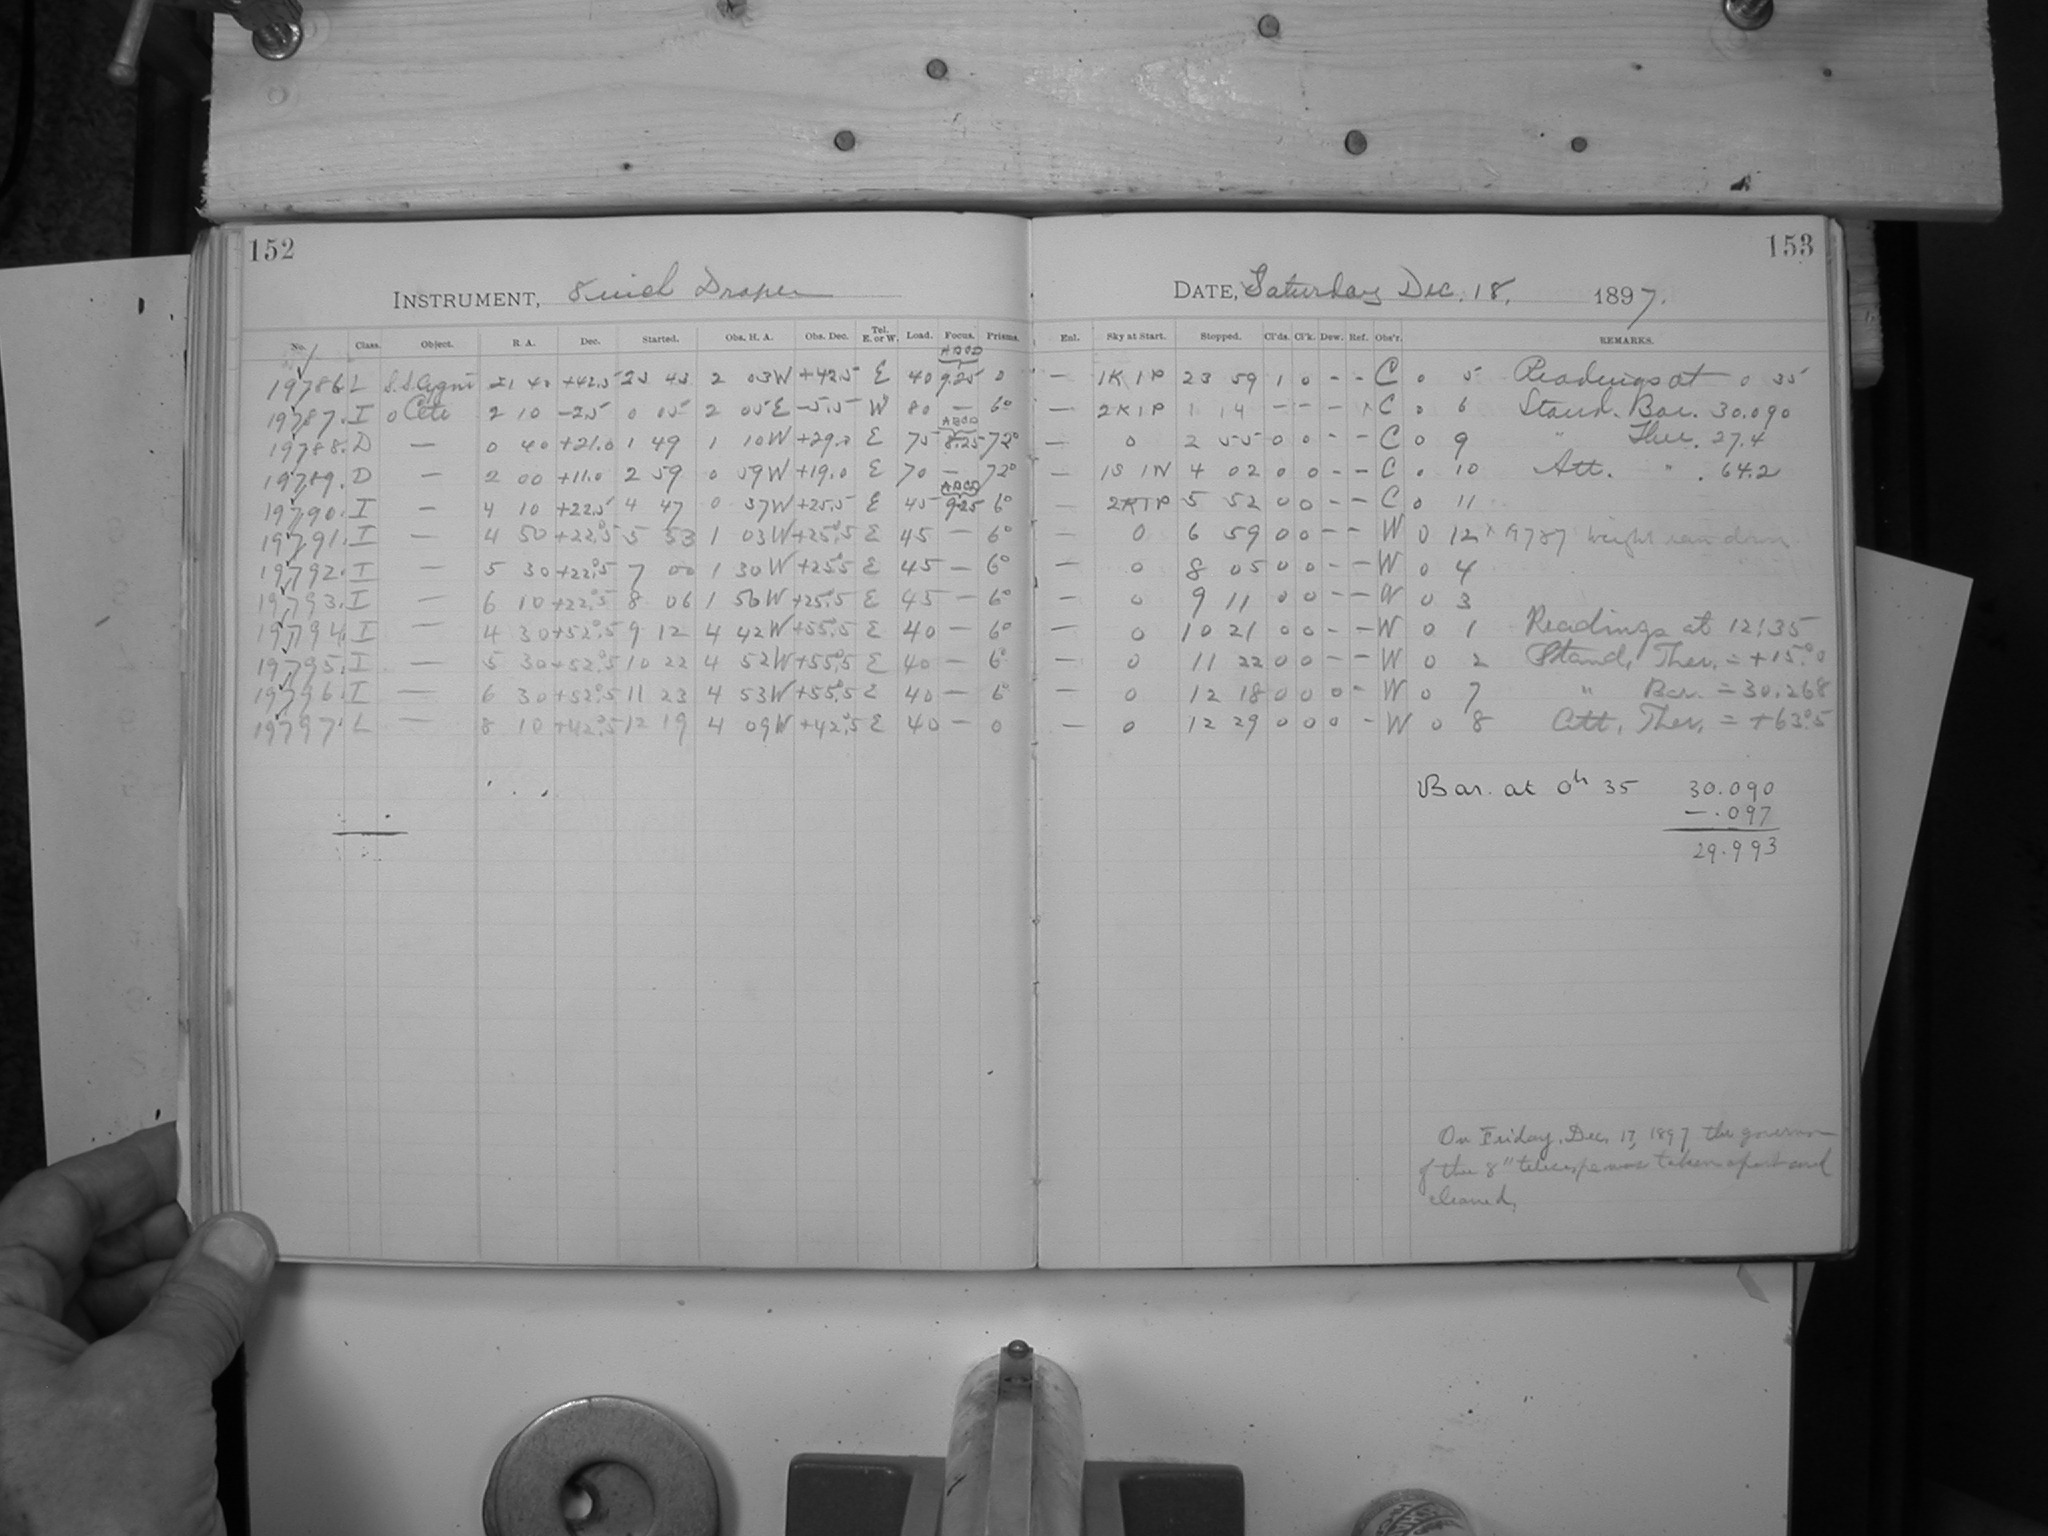 152
153
INSTRUMENT, 8 inch Draper
DATE, Saturday Dec. 18, 1897.
No. Class. Object. R. A. Dec. Started. Obs. H. A. Obs. Dec. Tel. E. or W. Load. Focus. Prisms. Enl. Sky at Start. Stopped. Cl'ds. Cl'k. Dew. Ref. Obs'r. REMARKS.
ABCD
19786. L S.S. Cygni 21 40 +42.5 23 43 2 03W +42.5 E 40 9.25 0 — 1K 1P 23 59 1 0 - - C 0 5 Readings at 0 35
19787. I o Ceti 2 10 -2.5 0 05 2 05E -5.5 W 80 — 6° — 2K1P 1 14 - - - x C 0 6 Stand. Bar. 30.090
ABCD
19788. D — 0 40 +21.0 1 49 1 10W +29.0 E 75 8.25 72° — 0 2 55 0 0 - - C 0 9 " Ther. 27.4
19789. D — 2 00 +11.0 2 59 0 59W +19.0 E 70 — 72° — 1S 1N 4 02 0 0 - - C 0 10 Att. " . 64.2
ABCD
19790. I — 4 10 +22.5 4 47 0 37W +25.5 E 45 9.25 6° — 2K1P 5 52 0 0 - - C 0 11
19791. I — 4 50 +22°.5 5 53 1 03W +25°.5 E 45 — 6° — 0 6 59 0 0 - - W 0 12 x 19787 weight ran down
19792. I — 5 30 +22°.5 7 00 1 30W +25°.5 E 45 — 6° — 0 8 05 0 0 - - W 0 4
19793. I — 6 10 +22°.5 8 06 1 56W +25°.5 E 45 — 6° — 0 9 11 0 0 - - W 0 3
19794. I — 4 30 +52°.5 9 12 4 42W +55°.5 E 40 — 6° — 0 10 21 0 0 - - W 0 1 Readings at 12:35
19795. I — 5 30 +52°.5 10 22 4 52W +55°.5 E 40 — 6° — 0 11 22 0 0 - - W 0 2 Stand, Ther. = +15°.0
19796. I — 6 30 +52°.5 11 23 4 53W +55°.5 E 40 — 6° — 0 12 18 0 0 0 - W 0 7 " Bar. = 30.268
19797. L — 8 10 +42°.5 12 19 4 09W +42°.5 E 40 — 0 — 0 12 29 0 0 0 - W 0 8 Att, Ther. = +63°.5
Bar. at 0h 35 30.090
— .097
29.993
On Friday, Dec, 17, 1897 the governor
of the 8" telescope was taken apart and
cleaned,